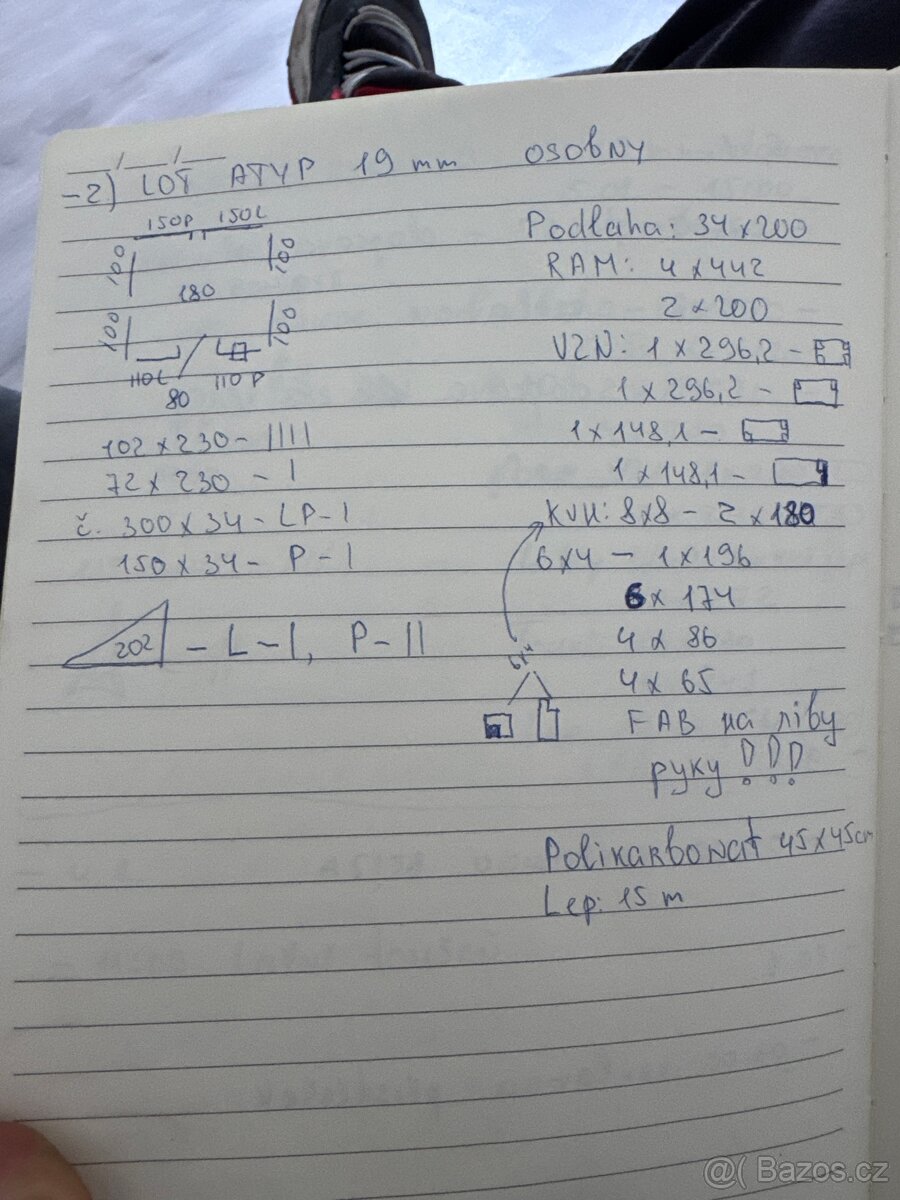 -2) LOT ATYP 19 mm OSOBNY
150P 150L
100 100
180
100 100
110L 110P
80
102 x 230 - ||||
72 x 230 - |
č. 300 x 34 - LP - |
150 x 34 - P - |
202 - L - |, P - ||
Podlaha: 34 x 200
RAM: 4 x 442
2 x 200
VZN: 1 x 296,2 -
1 x 296,2 -
1 x 148,1 -
1 x 148,1 -
KVH: 8x8 - 2 x 180
6x4 - 1 x 196
6 x 174
4 x 86
4 x 65
6x4
FAB на ліву
руку !!!
Polikarbonat 45 x 45 cm
Lep: 15 m
@( Bazos.cz